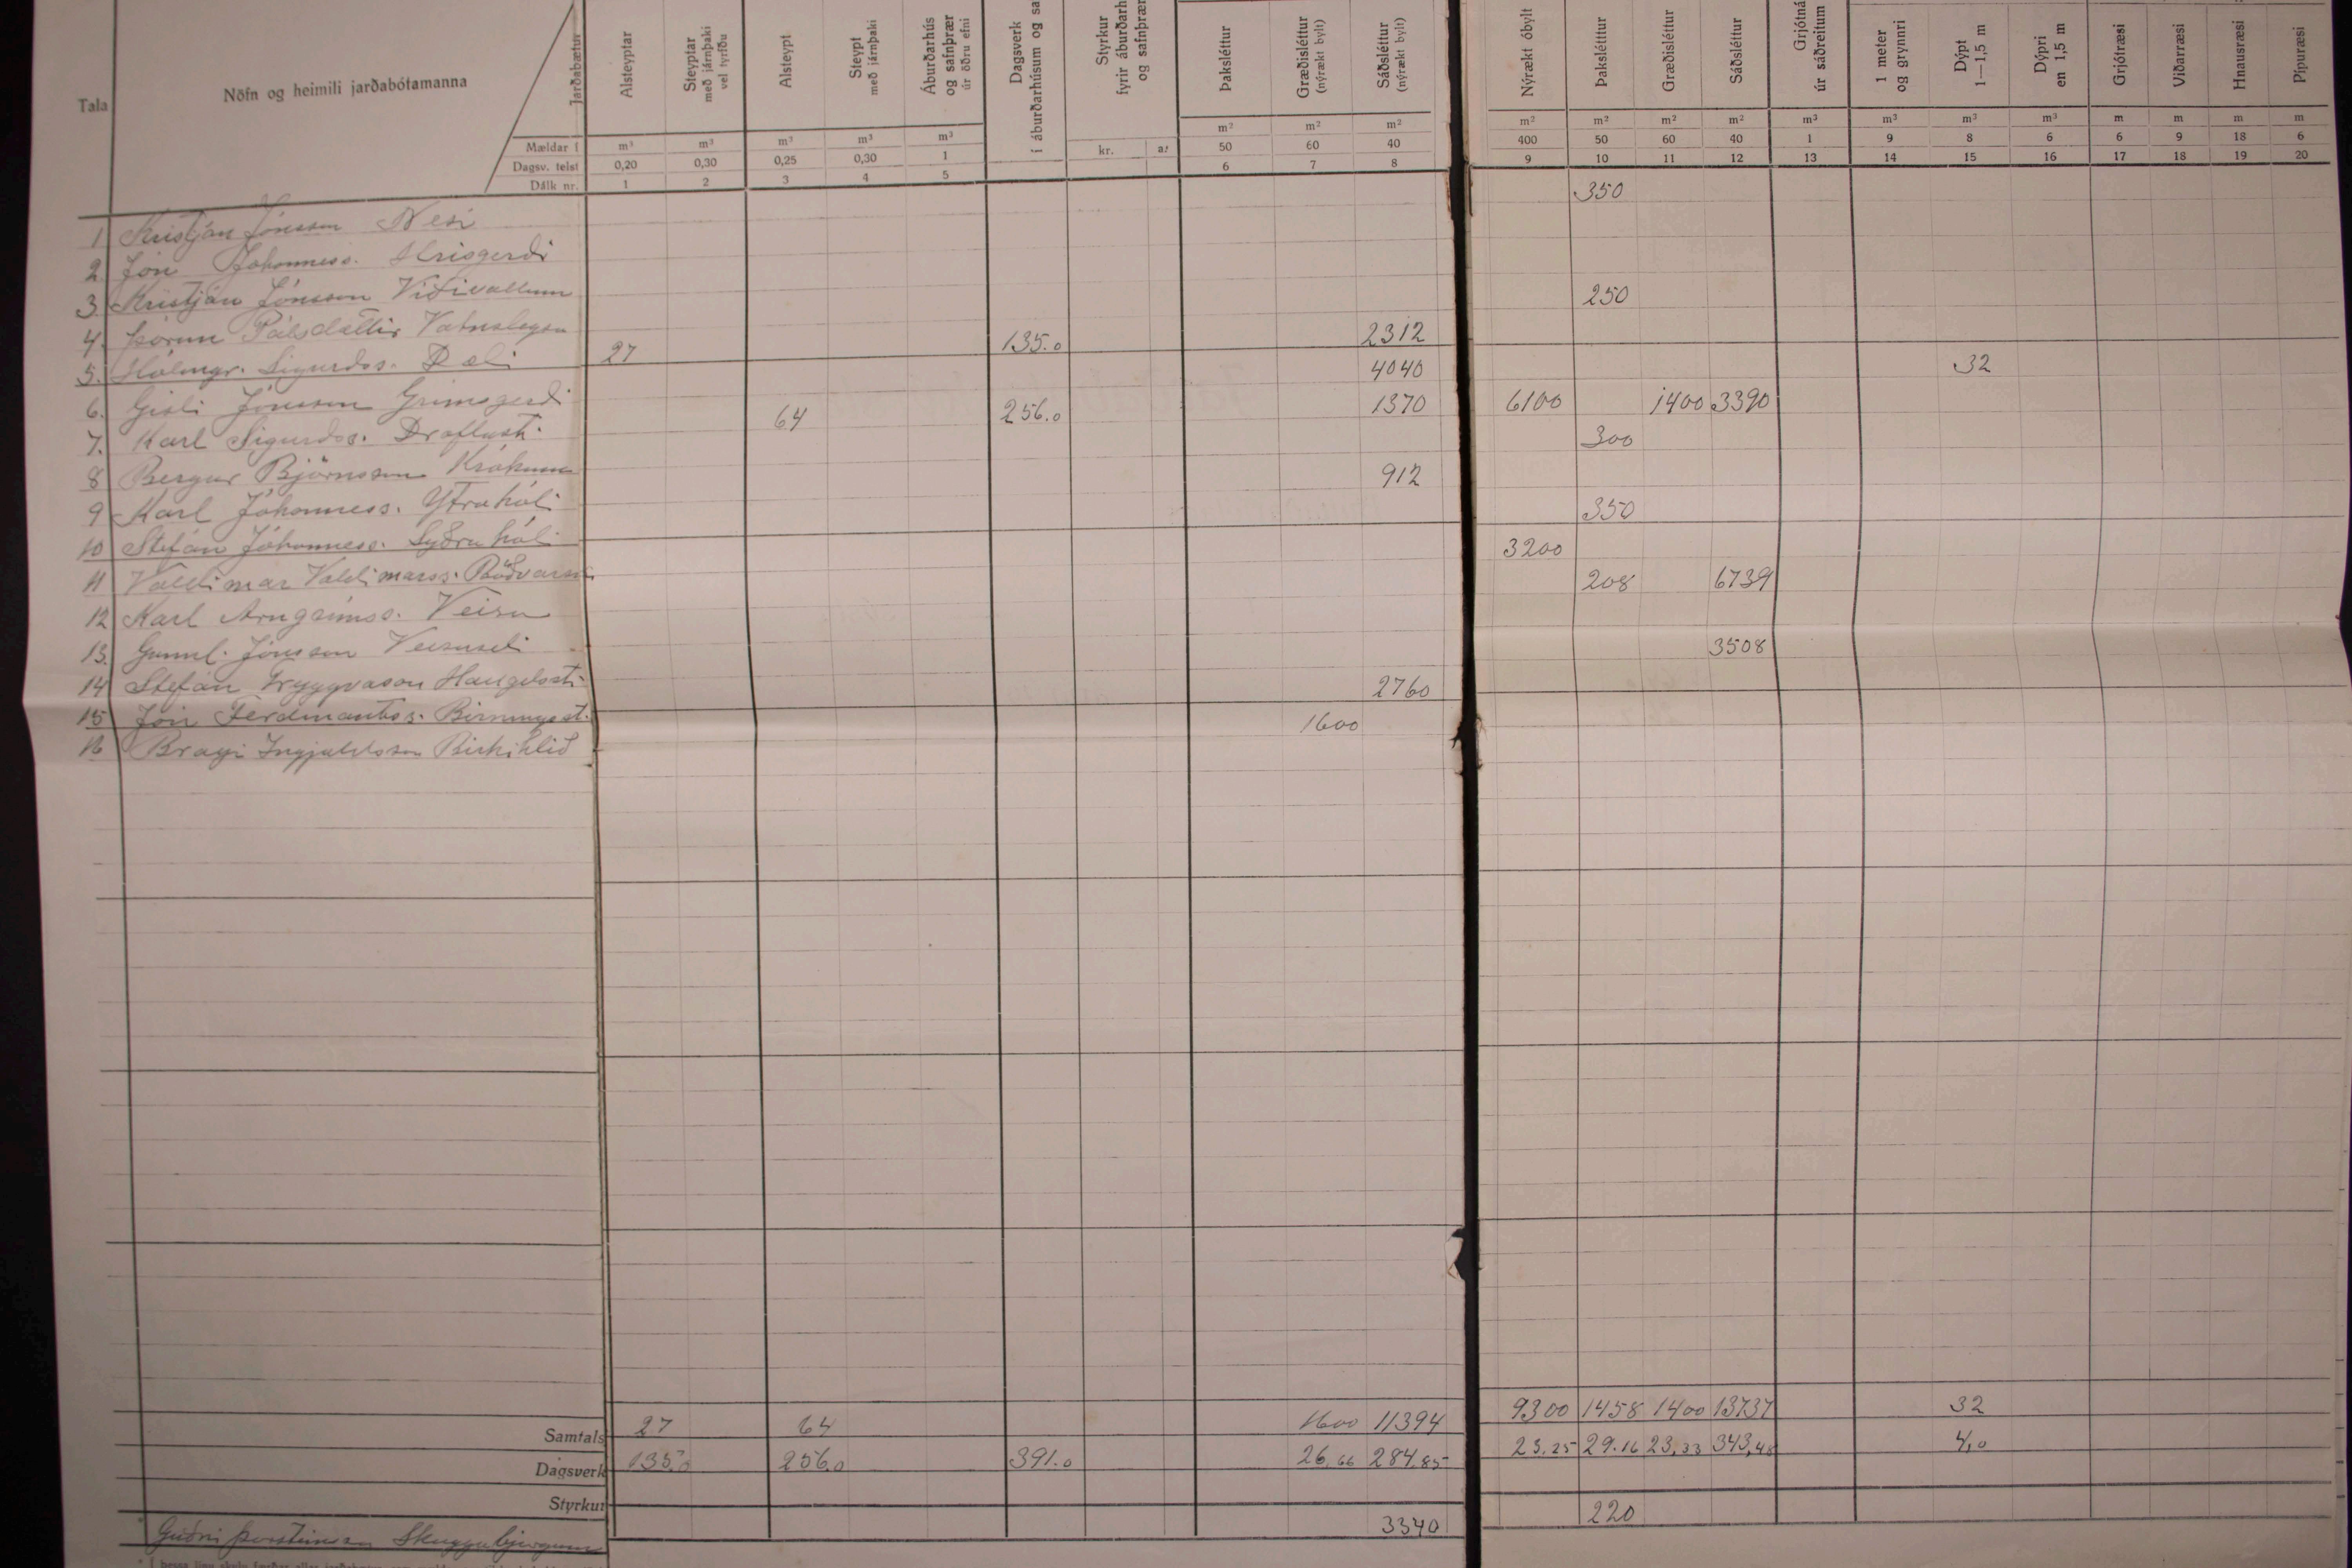 Tala Nöfn og heimili jarðabótamanna Jarðabætur Alsteyptar Steyptar með járnþaki vel tyrfðu Alsteypt Steypt með járnþaki Áburðarhús og safnþrær úr öðru efni Dagsverk í áburðarhúsum og sa Styrkur fyrir áburðarh og safnþrær Þaksléttur Græðisléttur (nýrækt bylt) Sáðsléttur (nýrækt bylt) Nýrækt óbylt Þakslétttur Græðisléttur Sáðsléttur Grjótná úr sáðreitum 1 meter og grynnri Dýpt 1—1,5 m Dýpri en 1,5 m Grjótræsi Viðarræsi Hnausræsi Pípuræsi
Mældar í m³ m³ m³ m³ m³ kr. a. m² m² m² m² m² m² m² m³ m³ m³ m³ m m m m
Dagsv. telst 0,20 0,30 0,25 0,30 1 50 60 40 400 50 60 40 1 9 8 6 6 9 18 6
Dálk nr. 1 2 3 4 5 6 7 8 9 10 11 12 13 14 15 16 17 18 19 20
1 Kristján Jónsson Nesi 350
2 Jón Jóhanness. Hrisgerði
3 Kristján Jónsson Víðivöllum 250
4. Þórunn Pálsdóttir 2312
5. Hólmgr. Sigurðss. Dæli 27 135.0 4040 32
6. Gísli Jónsson Grímsgerði 1370 6100 1400 3390
7. Karl Sigurðss. Draflast. 64 256.0 300
8 Bergur Björnsson Krókum 912
9 Karl Jóhanness. Ytrahóli 350
10 Stefán Jóhanness. Syðrahóli 3200
11 Valdimar Valdimarss. 208 6739
12 Karl Arngrímss. Veisu
13. Gunnl. Jónsson Veisuseli 3508
14 Stefán Tryggvason Hallgilsst. 2760
15 Jón Ferdinantss. Birningsst. 1600
16 Bragi Ingjaldsson Birkihlíð
Samtals 27 64 1600 11394 9300 1458 1400 13737 32
Dagsverk 135.0 256.0 391.0 26.66 284.85 23.25 29.16 23,33 343,48 4,0
Styrkur
Guðni Þorsteinsson Skuggabjörgum 3340 220